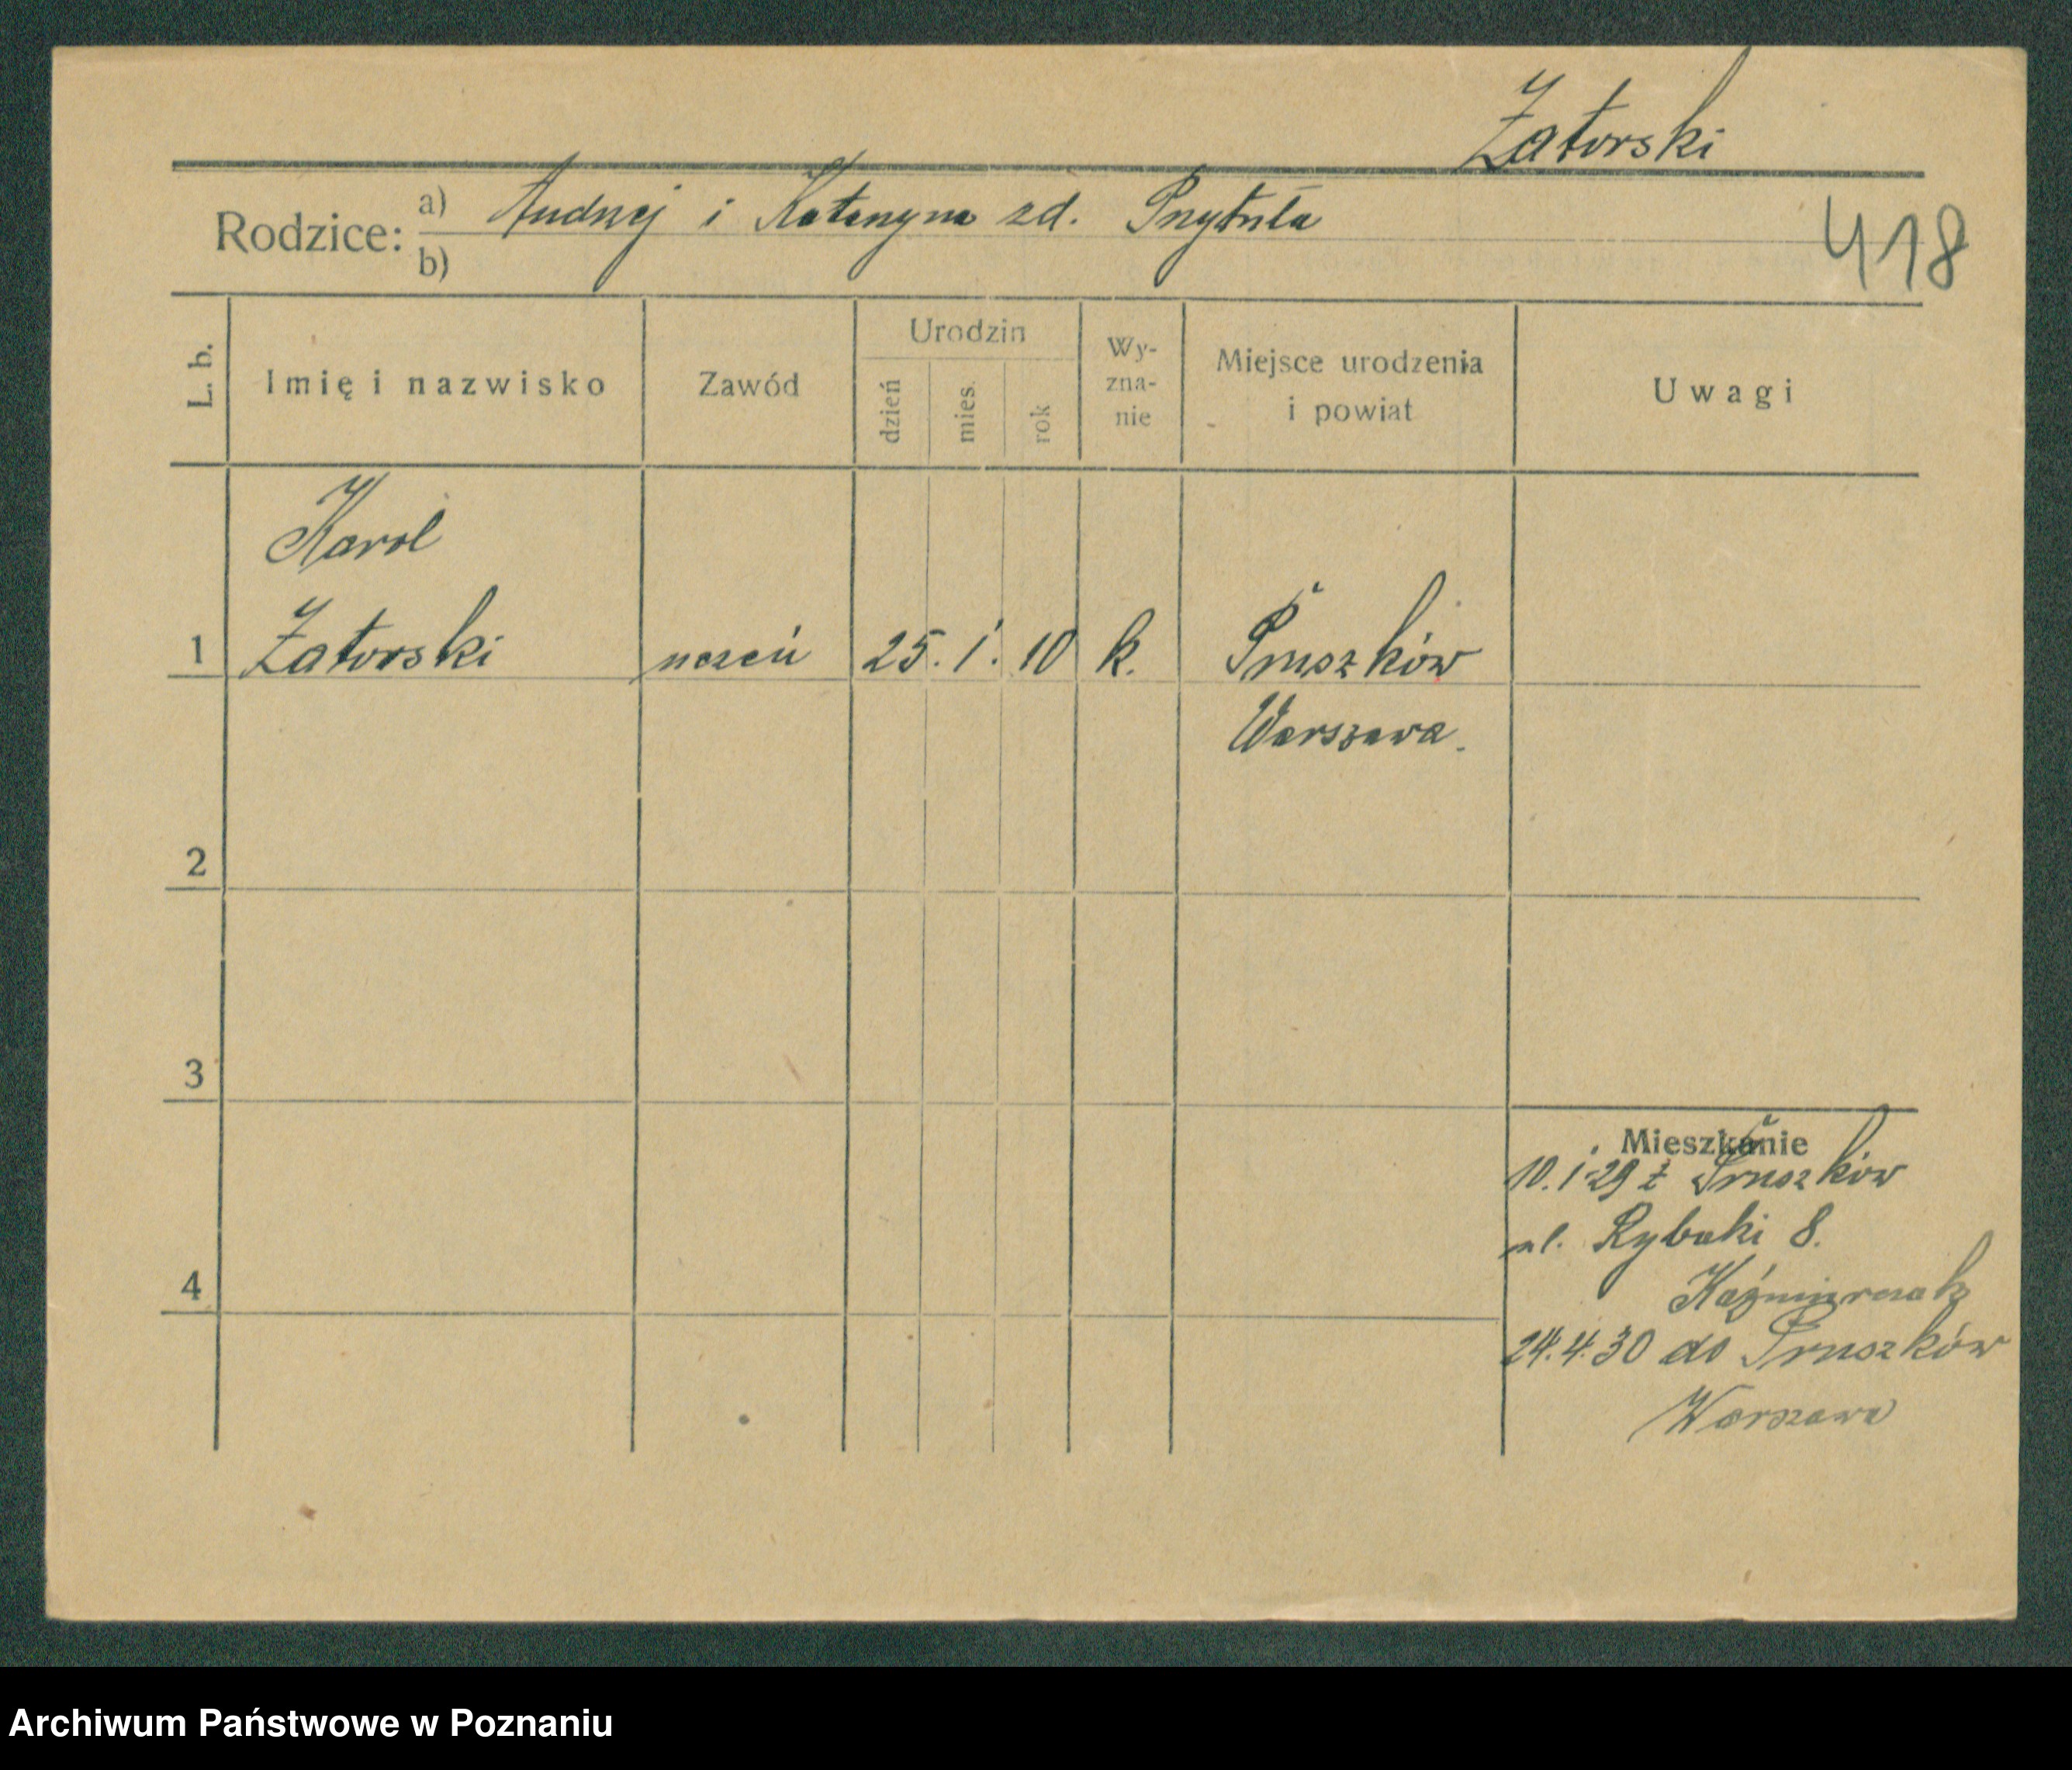 Zatorski
418
Rodzice: a) Andrzej i Katarzyna zd. Przytuła
b)
L. b.
Imię i nazwisko
Zawód
Urodzin
dzień
mies.
rok
Wy-
zna-
nie
Miejsce urodzenia
i powiat
Uwagi
Karol
1 Zatorski uczeń 25. 1. 10 k. Pruszków
Warszawa.
2
3
4
Mieszkanie
10.1.29 z Pruszków
ul. Rybaki 8.
Kaźmierczak
24.4.30 do Pruszków
Warszawa
Archiwum Państwowe w Poznaniu